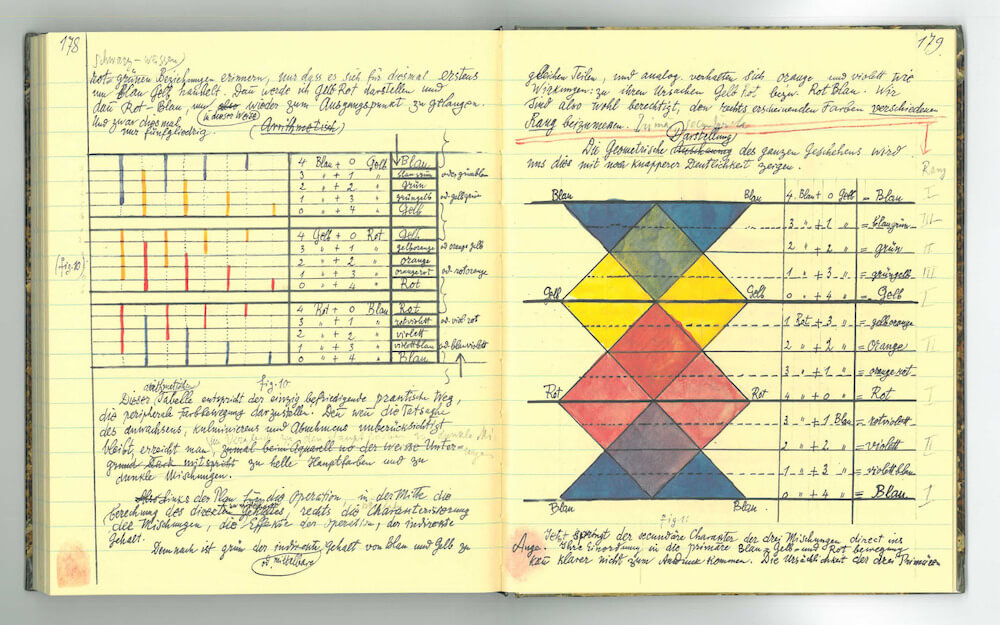 178
schwarz-weissen
rot-grünen Beziehungen erinnern, nur dass es sich für diesmal erstens
um Blau Gelb handelt. Dann werde ich Gelb Rot darstellen und
dann Rot-Blau, um also wieder zum Ausgangspunkt zu gelangen.
(in dieser Weise)
Und zwar diesmal (Arithmetisch)
nur fünfgliedrig.
4 Blau + 0 Gelb Blau
3 " + 1 " blaugrün od. grünblau
2 " + 2 " Grün
1 " + 3 " grüngelb od. gelbgrün
0 " + 4 " Gelb
4 Gelb + 0 Rot Gelb
3 " + 1 " gelborange od. orangegelb
2 " + 2 " orange
(fig. 10)
1 " + 3 " orangerot od. rotorange
0 " + 4 " Rot
4 Rot + 0 Blau Rot
3 " + 1 " rotviolett od. viol rot
2 " + 2 " violett
1 " + 3 " violettblau od. blauviolett
0 " + 4 " Blau
fig. 10
arithmetische
Dieser Tabelle entspricht der einzig befriedigende praktische Weg,
die peripherale Farbbewegung darzustellen. Denn wenn die Tatsache
des anwachsens, kulminierens und Abnehmens unberücksichtigt
bleibt, erreicht man, zumal beim Aquarell wo der weisse Unter-
grund stark mitspricht zu helle Hauptfarben und zu
dunkle Mischungen.
Also Links der Plan für die Operation, in der Mitte die
berechnung des Gehaltes, rechts die Charakterisierung
der Mischungen, die Effekte der Operation, der indirecte
Gehalt.
Demnach ist grün der indirecte Gehalt von Blau und Gelb zu
od. mittelbare
179
gleichen Teilen, und analog verhalten sich orange und violett wie
Wirkungen zu ihren Ursachen Gelb Rot bezw. Rot Blau. Wir
sind also wohl berechtigt, den rechts erscheinenden Farben verschiedenen
Rang beizumessen.
Darstellung
Die Geometrische des ganzen Geschehens wird
uns dies mit noch knapperer Deutlichkeit zeigen.
Rang
Blau Blau 4 Blau + 0 Gelb = Blau I
3 " + 1 " = blaugrün III
2 " + 2 " = grün II
1 " + 3 " = grüngelb III
Gelb Gelb 0 " + 4 " = Gelb I
1 Rot + 3 " = gelborange
2 " + 2 " = Orange II
3 " + 1 " = orangerot
Rot Rot 4 " + 0 " = Rot I
3 " + 1 Blau = rotviolett
2 " + 2 " = violett II
1 " + 3 " = violettblau
0 " + 4 " = Blau I
Blau Blau
fig. 11
Jetzt springt der secundäre Charakter der drei Mischungen direct ins
Auge. Ihre Einordnung in die primäre Blau-Gelb- und Rot bewegung
kann klarer nicht zum Ausdruck kommen. Die Ursächlichkeit der drei Primären